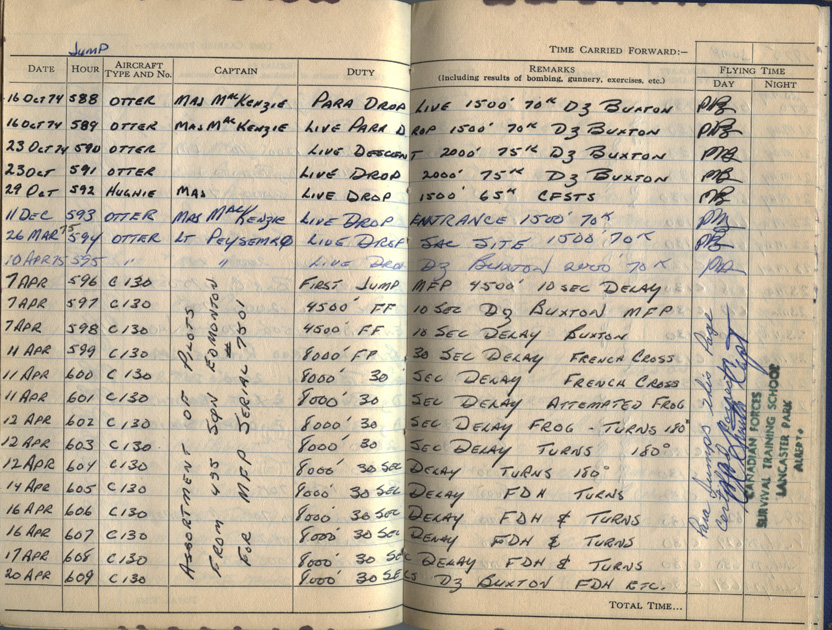 JUMP
TIME CARRIED FORWARD:–
DATE HOUR AIRCRAFT TYPE AND No. CAPTAIN DUTY REMARKS (Including results of bombing, gunnery, exercises, etc.) FLYING TIME DAY NIGHT
16 OCT 74 588 OTTER MAJ MacKENZIE PARA DROP LIVE 1500' 70K DZ BUXTON
16 OCT 74 589 OTTER MAJ MacKENZIE LIVE PARA DROP 1500' 70K DZ BUXTON
23 OCT 74 590 OTTER LIVE DESCENT 2000' 75K DZ BUXTON
23 OCT 591 OTTER LIVE DROP 2000' 75K DZ BUXTON
29 OCT 592 HUGHIE MAJ LIVE DROP 1500' 65K CFSTS
11 DEC 593 OTTER MAJ MacKENZIE LIVE DROP ENTRANCE 1500' 70K
26 MAR 75 594 OTTER LT LIVE DROP SAC SITE 1500' 70K
10 APR 75 595 " " LIVE DROP DZ BUXTON 2000' 70K
7 APR 596 C 130 FIRST JUMP MFP 4500' 10 SEC DELAY
7 APR 597 C 130 4500' FF 10 SEC DZ BUXTON MFP
7 APR 598 C 130 4500' FF 10 SEC DELAY BUXTON
11 APR 599 C 130 8000' FF 30 SEC DELAY FRENCH CROSS
11 APR 600 C 130 8000' 30 SEC DELAY FRENCH CROSS
11 APR 601 C 130 8000' 30 SEC DELAY ATTEMPTED FROG
12 APR 602 C 130 8000' 30 SEC DELAY FROG - TURNS 180°
12 APR 603 C 130 8000' 30 SEC DELAY TURNS 180°
12 APR 604 C 130 8000' 30 SEC DELAY TURNS 180°
14 APR 605 C 130 8000' 30 SEC DELAY FDH TURNS
16 APR 606 C 130 8000' 30 SEC DELAY FDH & TURNS
16 APR 607 C 130 8000' 30 SEC DELAY FDH & TURNS
17 APR 608 C 130 8000' 30 SEC DELAY FDH & TURNS
20 APR 609 C 130 8000' 30 SECS DZ BUXTON FDH ETC.
ASSORTMENT OF PILOTS
FROM 435 SQN EDMONTON
FOR MFP SERIAL #7501
Para Jumps this Page
Certified
Capt
CANADIAN FORCES
SURVIVAL TRAINING SCHOOL
LANCASTER PARK
ALBERTA
TOTAL TIME...